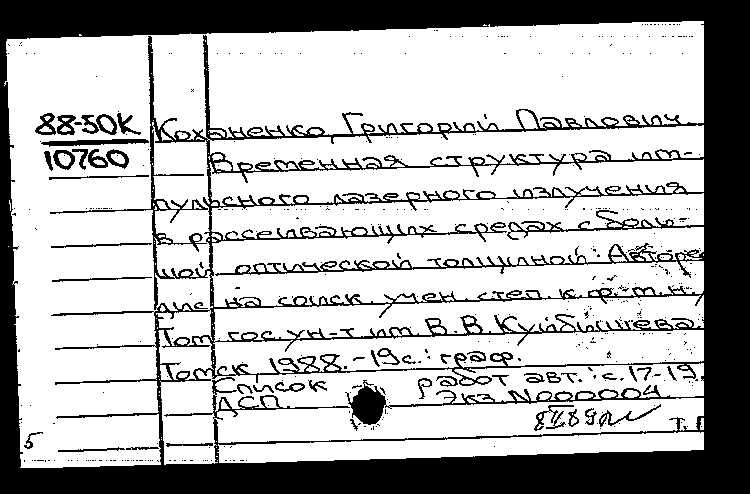 88-50К
10760
Коханенко, Григорий Павлович.
Временная структура им-
пульсного лазерного излучения
в рассеивающих средах с боль-
шой оптической толщиной: Авторе
дис на соиск. учен. степ. к. ф.-т. н.
Том гос. ун-т им. В. В. Куйбышева.
Томск, 1988. - 19 с.: граф.
Список работ авт.: с. 17-19.
ДСП. Экз. N000004.
5
Т. П